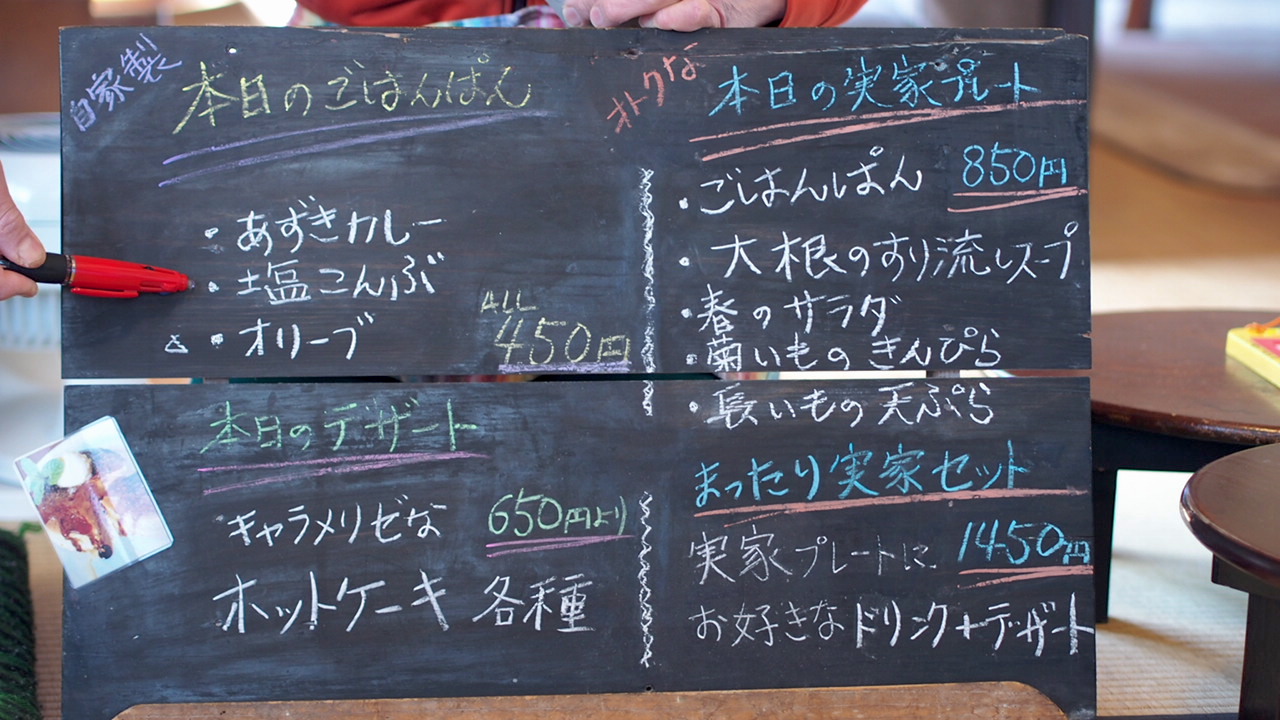 自家製
本日のごはんぱん
・あずきカレー
・塩こんぶ
・オリーブ
ALL
450円
本日のデザート
キャラメリゼな
650円より
ホットケーキ 各種
オトクな
本日の実家プレート
850円
・ごはんぱん
・大根のすり流しスープ
・春のサラダ
・菊いものきんぴら
・長いもの天ぷら
まったり実家セット
1450円
実家プレートに
お好きなドリンク+デザート